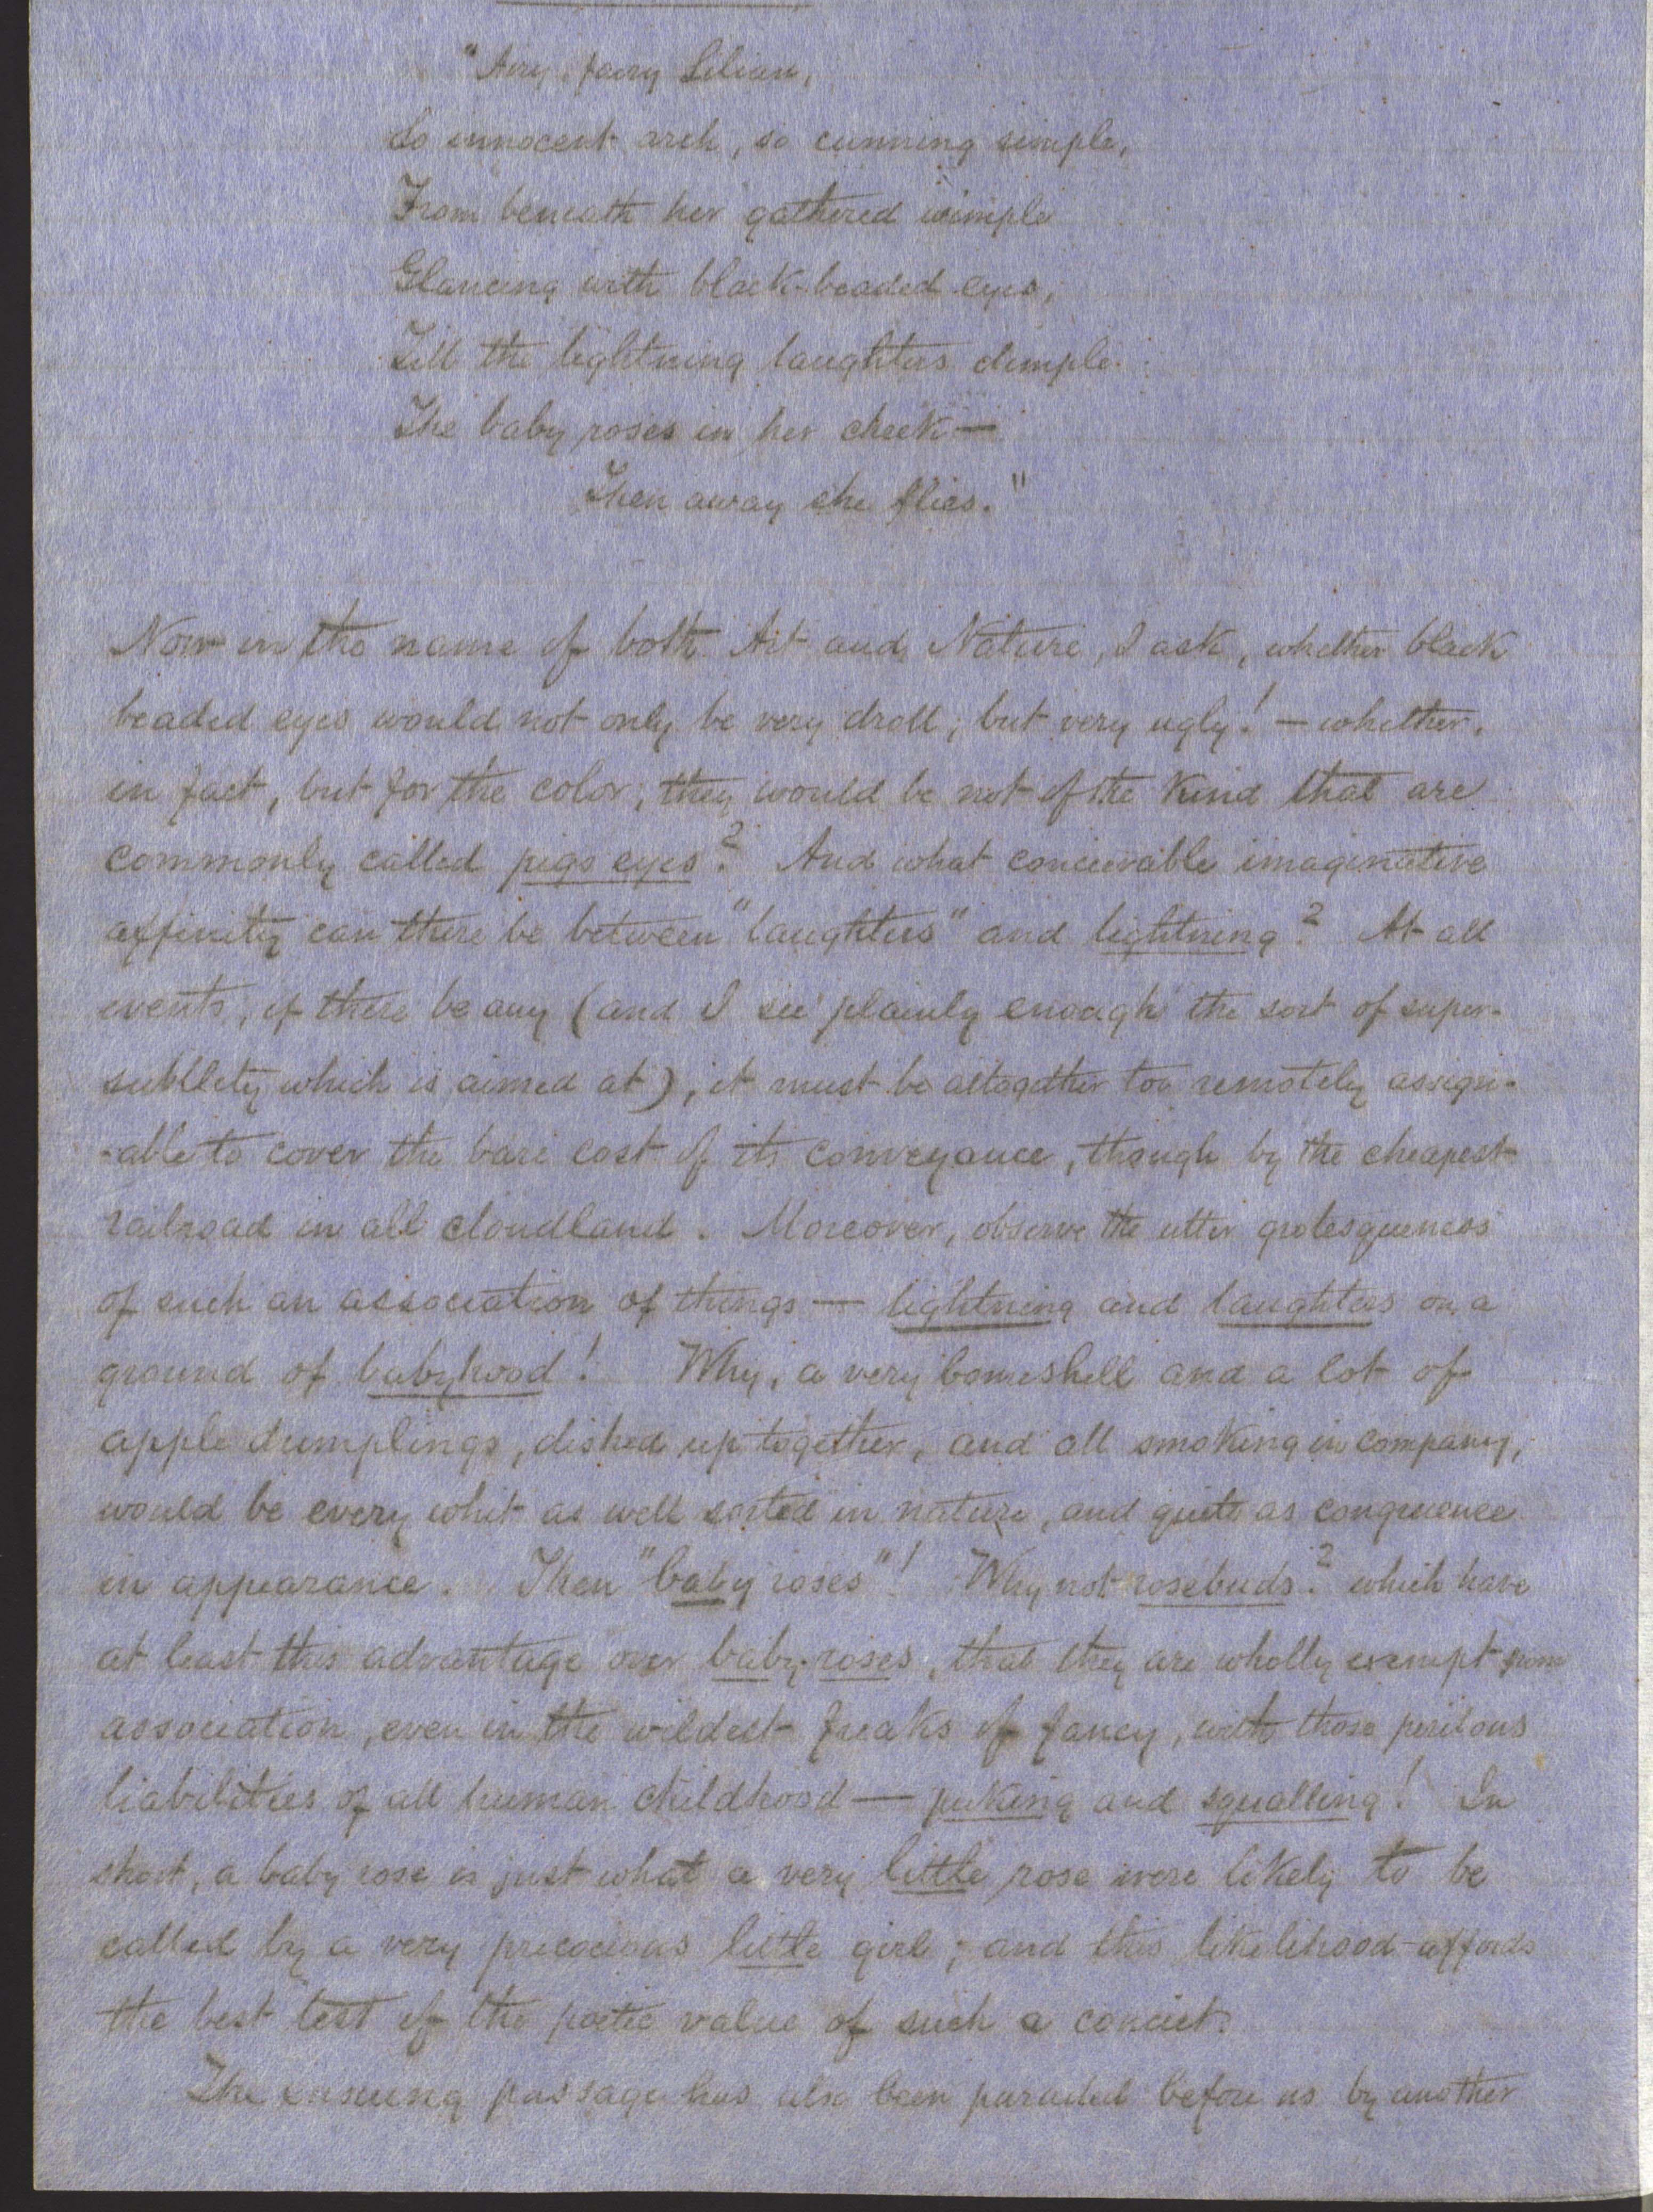 "Airy, fairy Lilian,
So innocent arch, so cunning simple,
From beneath her gathered wimple
Glancing with black-beaded eyes,
Till the lightning laughters dimple
The baby roses in her cheek —
Then away she flies."
Now in the name of both Art and Nature, I ask, whether black
beaded eyes would not only be very droll, but very ugly! — whether,
in fact, but for the color, they would be not of the kind that are
commonly called pigs eyes? And what conceivable imaginative
affinity can there be between "laughters" and lightning? At all
events, if there be any (and I see plainly enough the sort of super-
subtlety which is aimed at), it must be altogether too remotely assign-
-able to cover the bare cost of its conveyance, though by the cheapest
railroad in all cloudland. Moreover, observe the utter grotesqueness
of such an association of things — lightning and laughters on a
ground of babyhood! Why, a very bomeshell and a lot of
apple dumplings, dished up together, and all smoking in company,
would be every whit as well sorted in nature, and quite as congruence
in appearance. Then "baby roses"! Why not rosebuds? which have
at least this advantage over baby-roses, that they are wholly exempt from
association, even in the wildest freaks of fancy, with those perilous
liabilities of all human childhood — puking and squalling! In
short, a baby rose is just what a very little rose were likely to be
called by a very precocious little girl; and this likelihood affords
the best test of the poetic value of such a conceit.
The ensueing passage has also been paraded before us by another